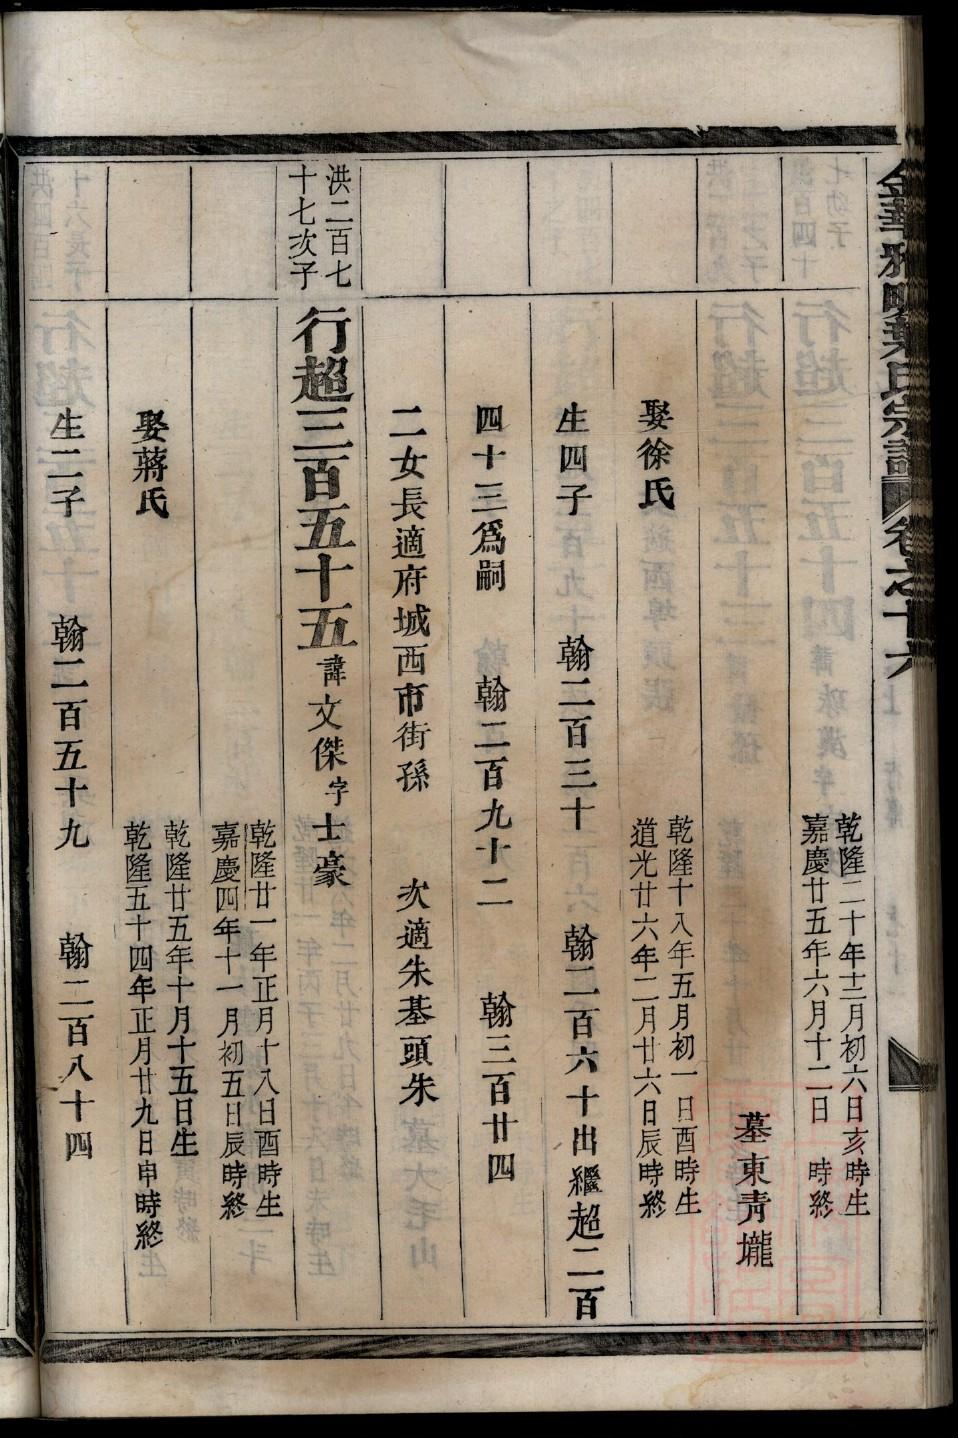 金華雅畈葉氏宗譜 卷之十六
乾隆二十年十二月初六日亥時生
嘉慶廿五年六月十二日 時終
墓東靑壠
娶徐氏
乾隆十八年五月初一日酉時生
道光廿六年二月廿六日辰時終
生四子 翰二百三十 翰二百六十出繼超二百
四十三爲嗣 翰二百九十二 翰三百廿四
二女長適府城西市街孫 次適朱基頭朱
洪二百七
十七次子
行超三百五十五 諱文傑 字士豪
乾隆廿一年正月十八日酉時生
嘉慶四年十一月初五日辰時終
娶蔣氏
乾隆廿五年十月十五日生
乾隆五十四年正月廿九日申時終
生二子 翰二百五十九 翰二百八十四